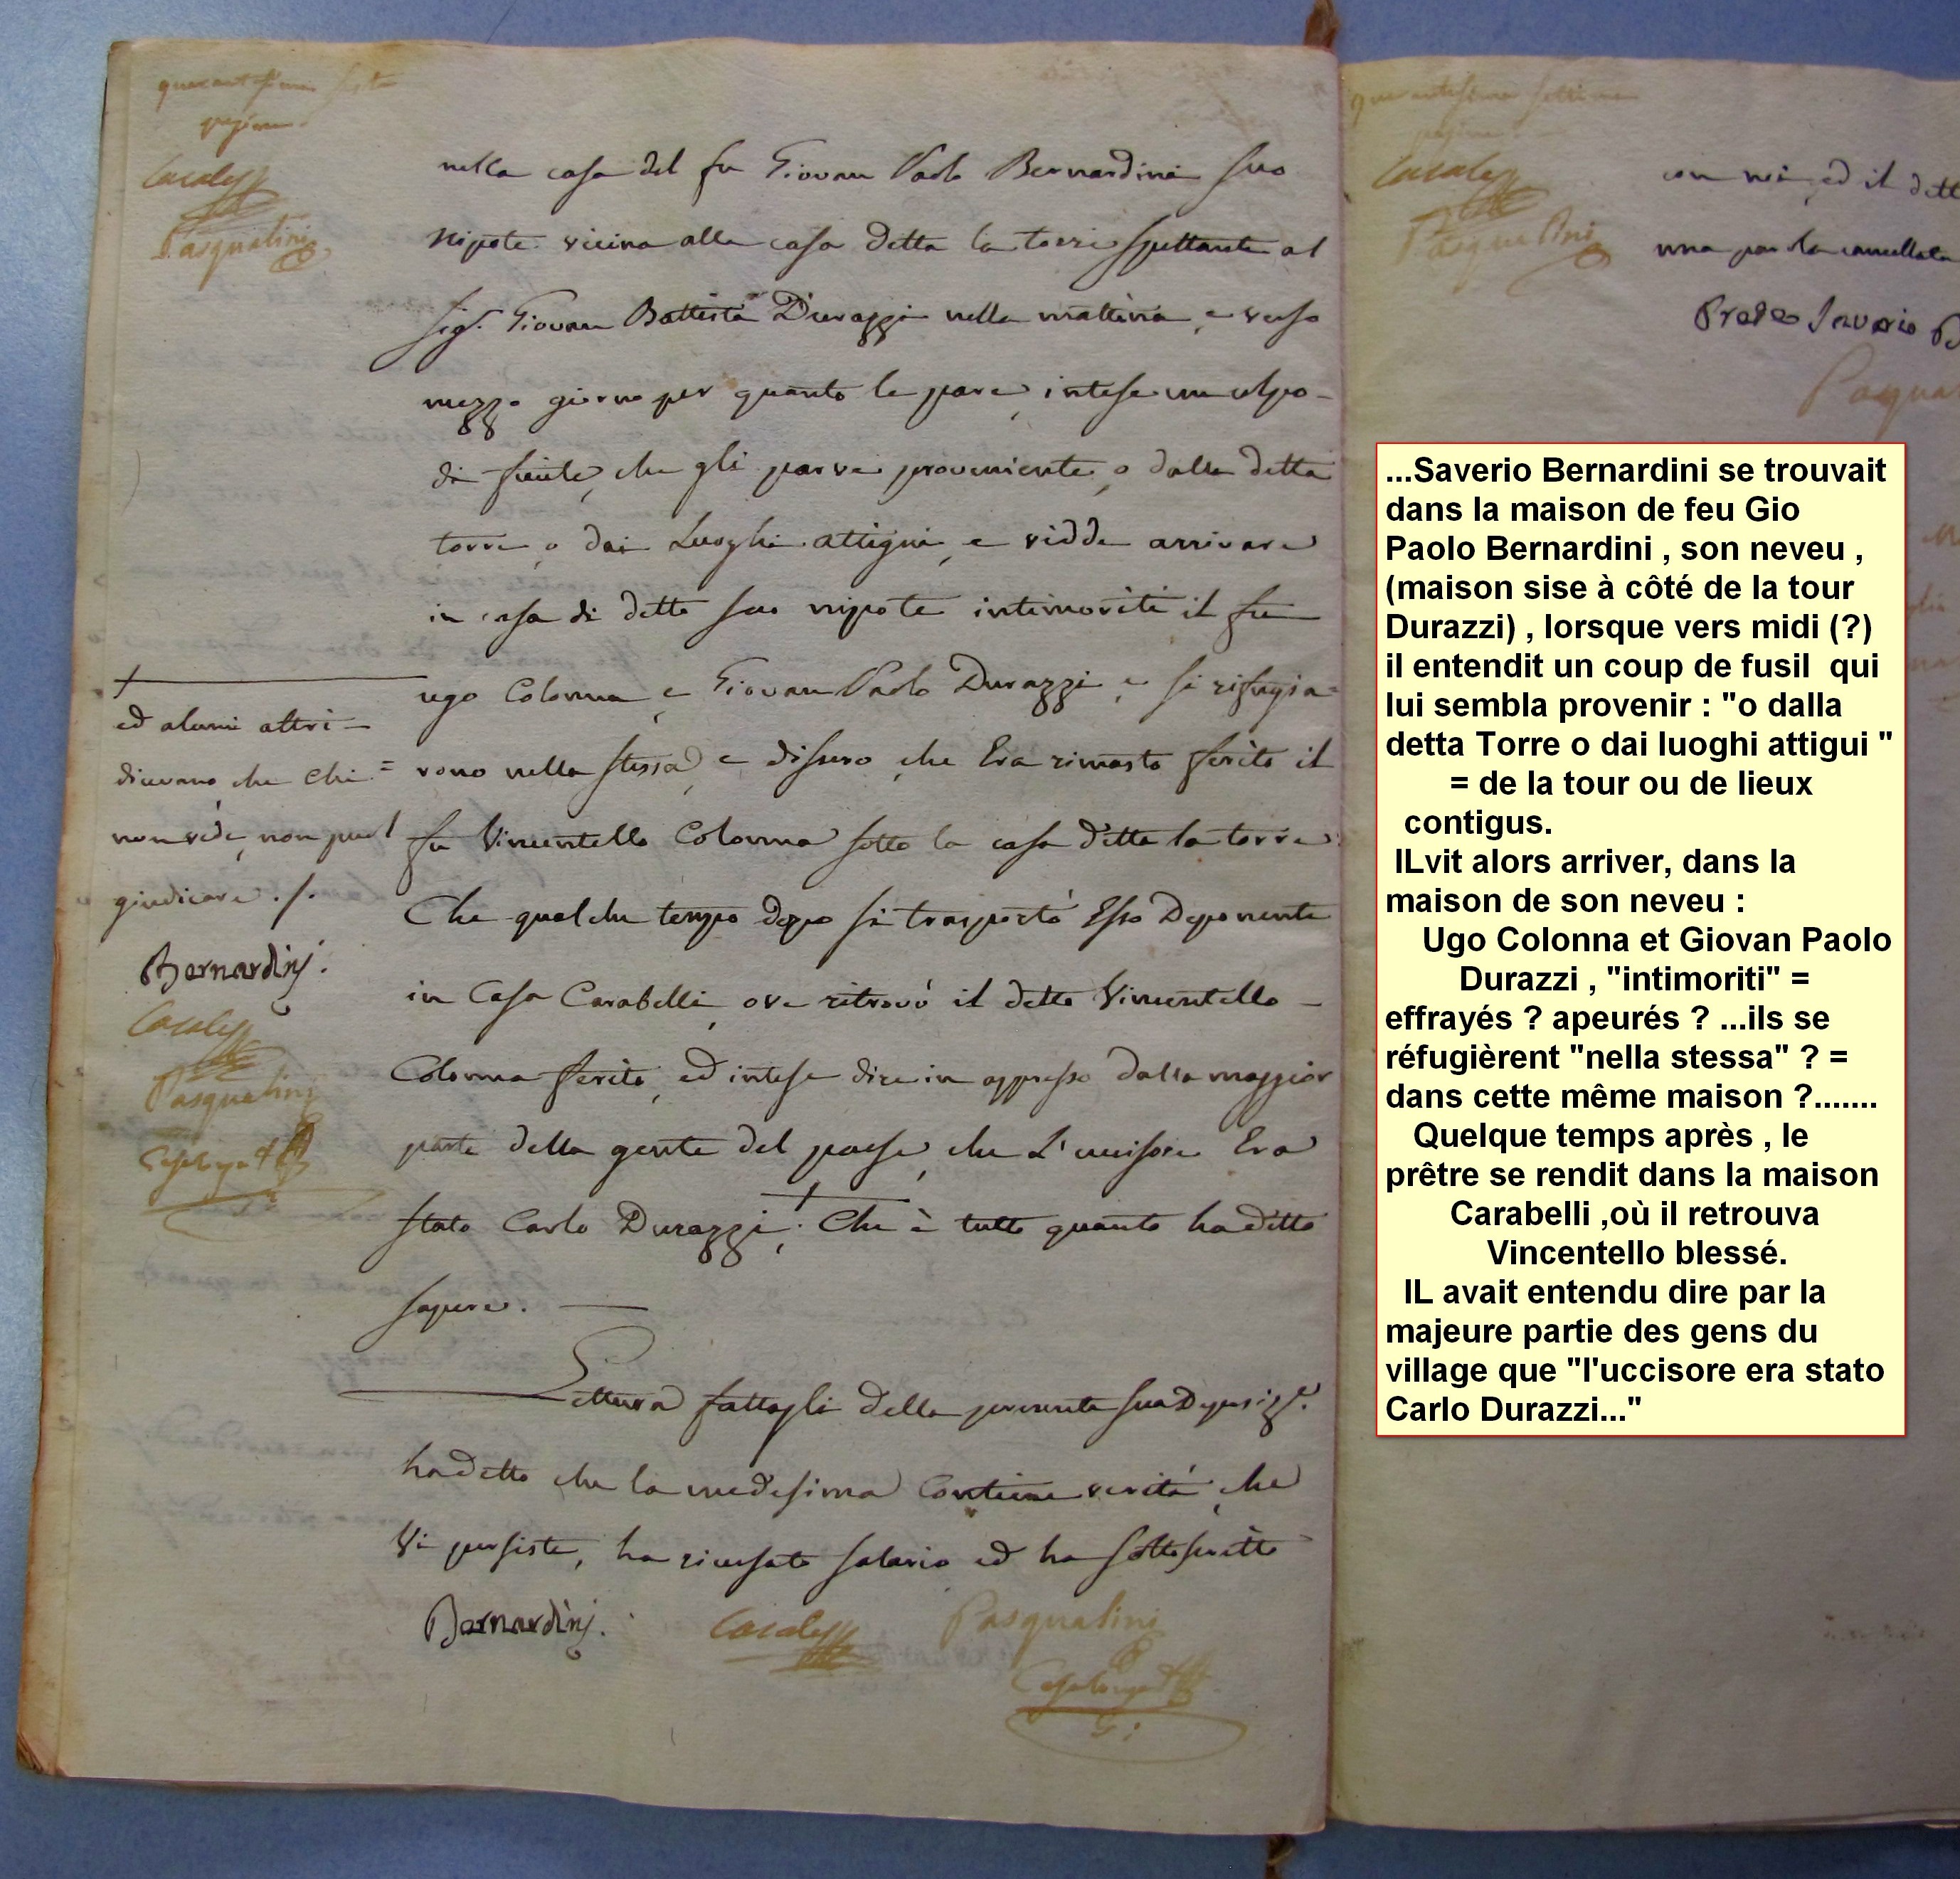 quarantesima sesta
pagina
Casalta
Pasqualini
nella casa del fu Giovan Paolo Bernardini suo
nipote vicina alla casa detta la torre spettante al
Sigr. Giovan Battista Durazzi nella mattina, e verso
mezzo giorno per quanto le pare, intese un colpo
di fucile, che gli parve proveniente, o dalla detta
torre, o dai Luoghi attigui, e vidde arrivare
in casa di detto suo nipote intimoriti il fu
ugo Colonna, e Giovan Paolo Durazzi, e si rifugia=
rono nella stessa, e dissero, che Era rimasto ferito il
fu Vincentello Colonna sotto la casa detta la torre.
Che qualche tempo dopo si trasportò Esso Deponente
in Casa Carabelli, ove ritrovò il detto Vincentello
Colonna ferito, ed intese dire in appresso dalla maggior
parte della gente del paese, che L'uccisore Era
stato Carlo Durazzi; + Che è tutto quanto ha detto
sapere.
Lettura fattagli della presente sua Deposizne.
ha detto che la medesima Contiene verità, che
Vi persiste, ha ricusato salario ed ha sottoscritto
Bernardini.
Pasqualini
+
ed alcuni altri
dicevano che Chi=
non vede, non può
giudicare ./.
Bernardini.
Pasqualini
quarantesima settima
pagina
Pasqualini
con noi, ed il dett
una parola cancellata
Prete Saverio B
Pasqua
...Saverio Bernardini se trouvait
dans la maison de feu Gio
Paolo Bernardini , son neveu ,
(maison sise à côté de la tour
Durazzi) , lorsque vers midi (?)
il entendit un coup de fusil qui
lui sembla provenir : "o dalla
detta Torre o dai luoghi attigui "
= de la tour ou de lieux
contigus.
ILvit alors arriver, dans la
maison de son neveu :
Ugo Colonna et Giovan Paolo
Durazzi , "intimoriti" =
effrayés ? apeurés ? ...ils se
réfugièrent "nella stessa" ? =
dans cette même maison ?.......
Quelque temps après , le
prêtre se rendit dans la maison
Carabelli ,où il retrouva
Vincentello blessé.
IL avait entendu dire par la
majeure partie des gens du
village que "l'uccisore era stato
Carlo Durazzi..."